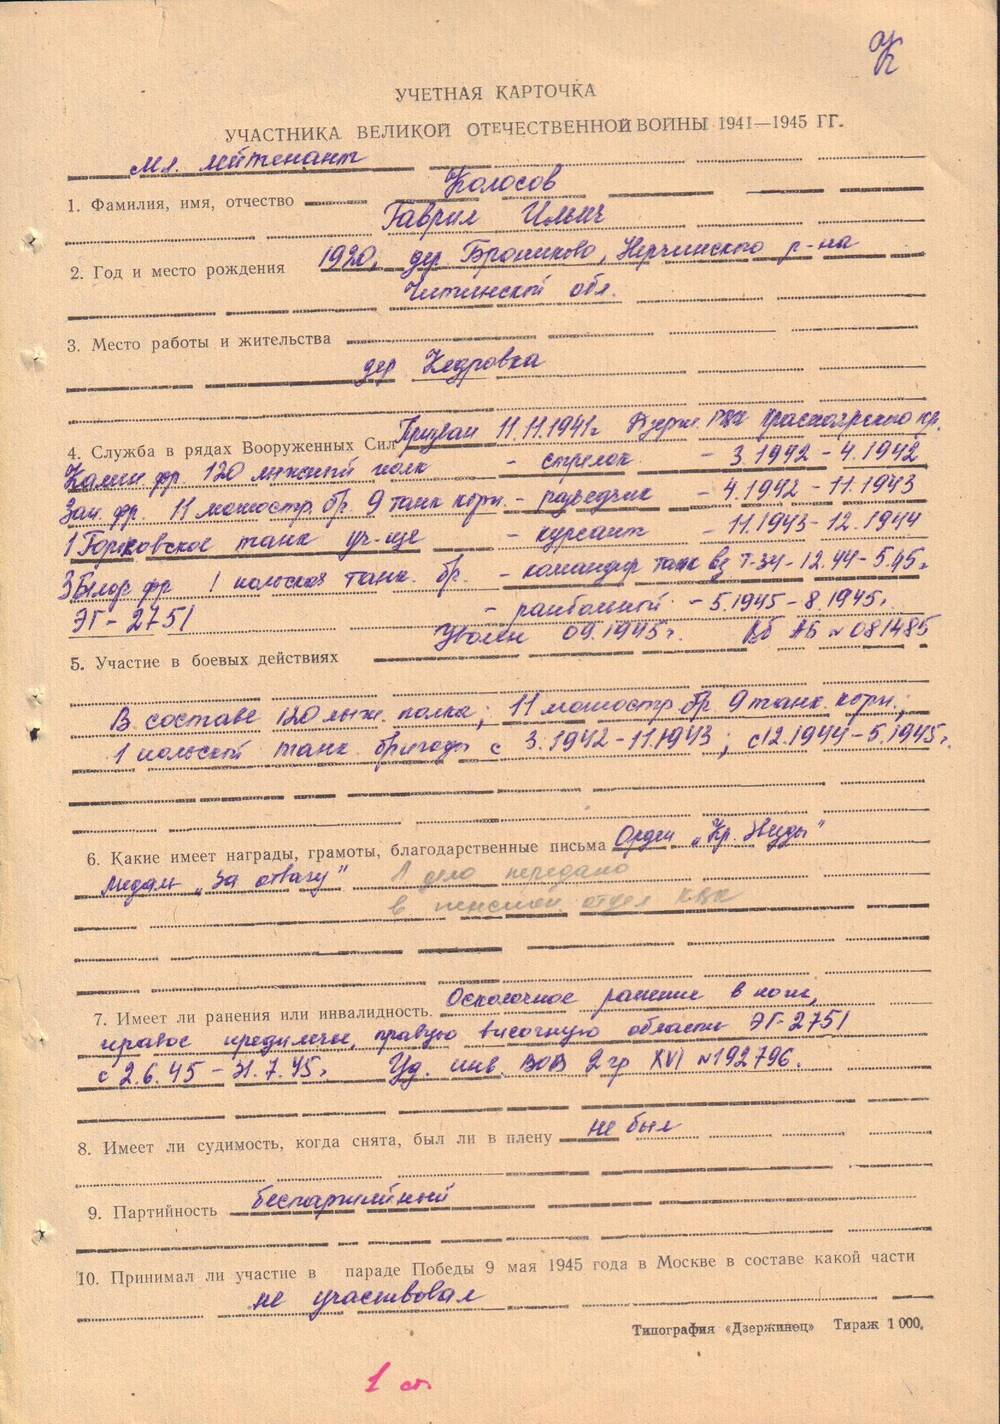 К
УЧЕТНАЯ КАРТОЧКА
УЧАСТНИКА ВЕЛИКОЙ ОТЕЧЕСТВЕННОЙ ВОЙНЫ 1941—1945 ГГ.
Мл. лейтенант
Колосов
1. Фамилия, имя, отчество
Гаврил Ильич
2. Год и место рождения 1920, дер. Нерчинского р-на
Читинской обл.
3. Место работы и жительства
дер Кедровка
4. Служба в рядах Вооруженных Сил Призван 11.11.1941г Дзерж. РВК Красноярского кр.
Калин. фр. 120 лыжный полк – стрелок – 3.1942 – 4.1942
Зап. фр. 11 мотостр. бр. 9 танк корп. – разведчик – 4.1942 – 11.1943
1 Горьковское танк уч-ще – курсант – 11.1943 – 12.1944
3 Белор фр 1 польская танк. бр. – командир танк вз Т-34 – 12.44 – 5.45г
ЭГ – 2751 – ранбольной – 5.1945 – 8.1945г.
Уволен 09.1945г. Вб АБ №081485
5. Участие в боевых действиях
В составе 120 лыж. полка; 11 мотостр бр. 9 танк. корп.;
1 польской танк. бригады с 3.1942 – 11.1943; с 12.1944 – 5.1945г.
6. Какие имеет награды, грамоты, благодарственные письма Орден „Кр. Звезды"
Медаль „За отвагу" Л дело передано
в отдел КВК
7. Имеет ли ранения или инвалидность. Осколочное ранение в ноги,
правое предплечье, правую височную область ЭГ-2751
с 2.6.45 – 31.7.45г Уд. инв. ВОВ 2 гр XVI №192796.
8. Имеет ли судимость, когда снята, был ли в плену не был
9. Партийность беспартийный
10. Принимал ли участие в параде Победы 9 мая 1945 года в Москве в составе какой части
не участвовал
Типография «Дзержинец» Тираж 1 000.
1 ст.